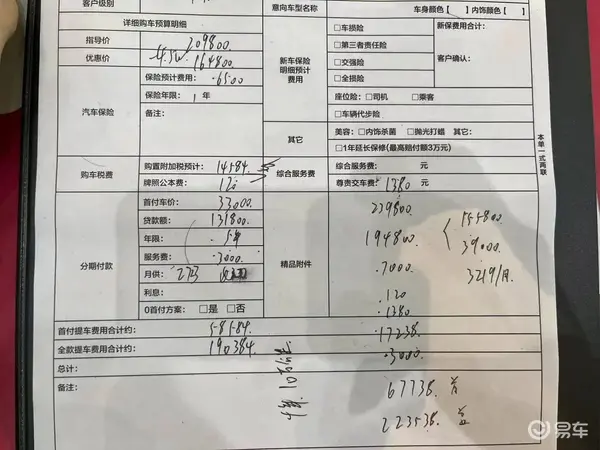 客户级别
意向车型名称 车身颜色【 】内饰颜色【 】
详细购车预算明细
指导价 209800.
优惠价 4.5W 164800.
汽车保险
保险预计费用: 6500
保险年限: 1 年
备注:
新车保险
明细预计
费用
□车损险
□第三者责任险
□交强险
□全损险
新保费用合计:
客户确认:
座位险: □司机 □乘客
□车辆代步险
其它
美容: □内饰杀菌 □抛光打蜡 其它:
□1年延长保修(最高赔付额3万元)
本单一式两联
购车税费
购置附加税预计: 14584.
牌照公本费: 120
综合服务费
综合服务费: 元
尊贵交车费: 1380 元
分期付款
首付车价: 33000.
贷款额: 131800.
年限: 5年
服务费: 3000.
月供: 2723
利息:
0首付方案: □是 □否
精品附件
239800.
194800.
155800.
39000.
3219/月
7000.
120
1380
17238.
3000.
首付提车费用合计约: 58584.
全款提车费用合计约: 190384.
总计:
备注:
67738. 首
223538. 全
易车